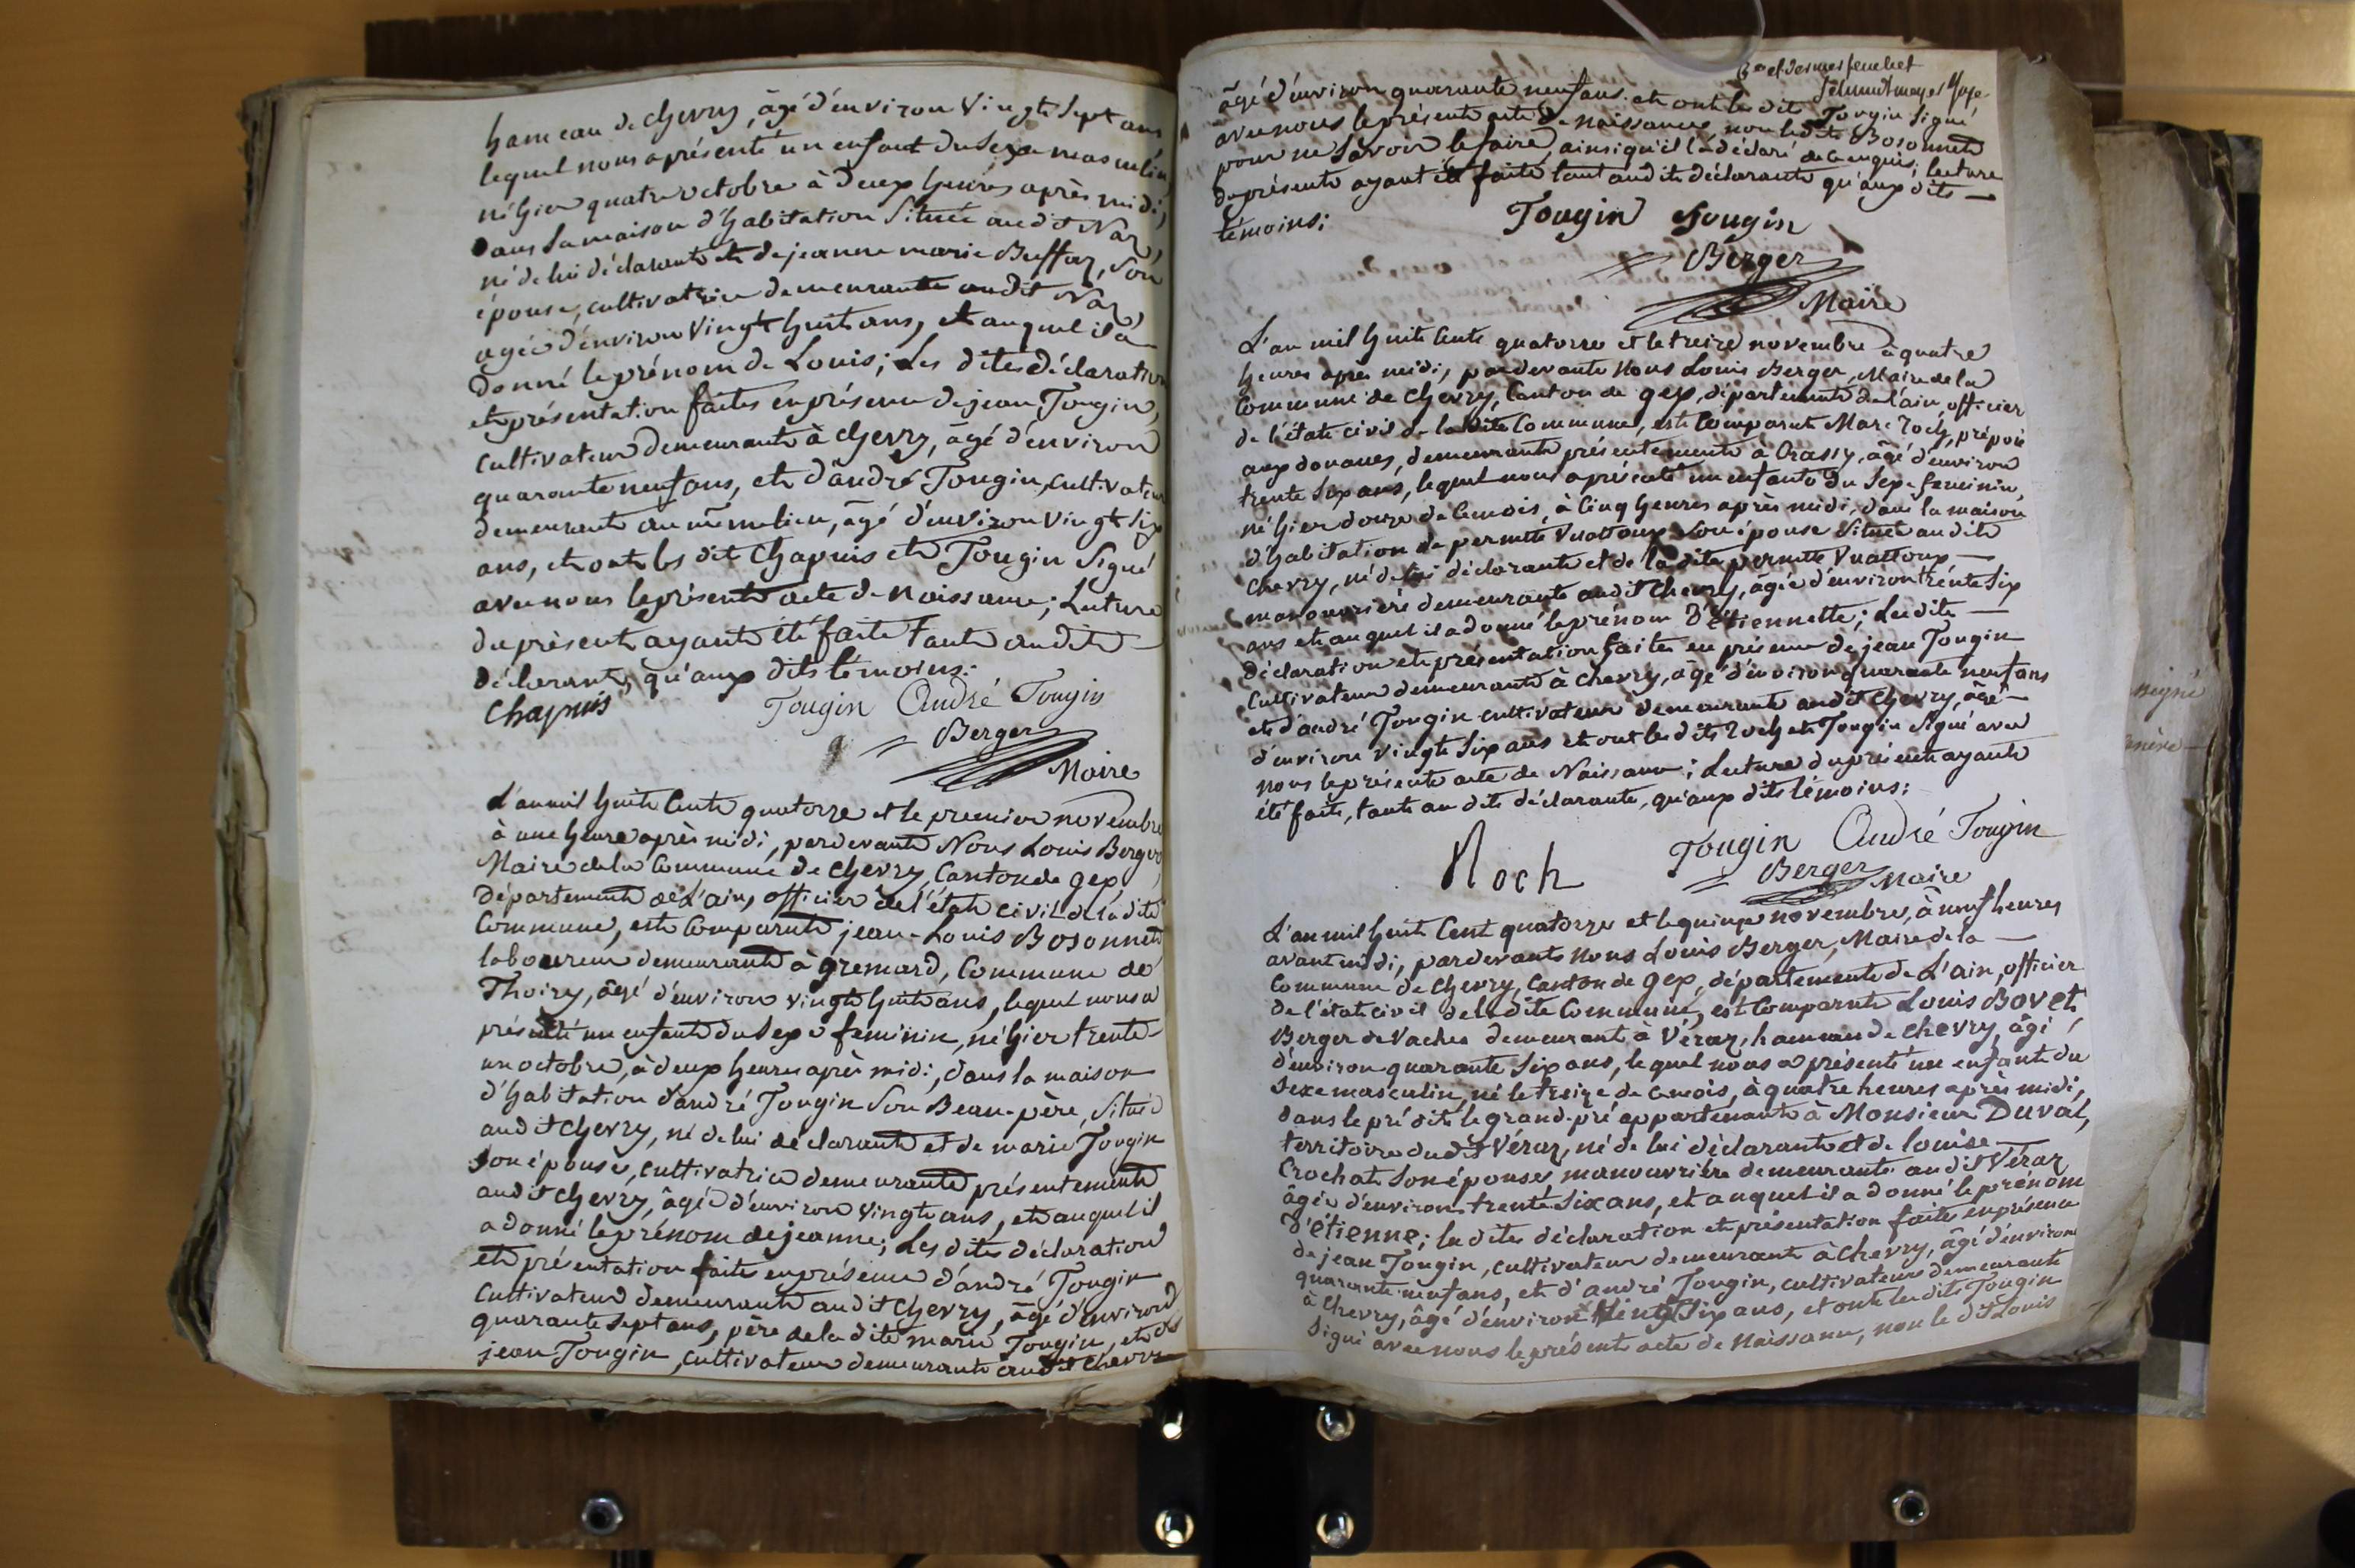 hameau de chevry, âgé d'environ vingt Sept ans
lequel nous a présenté un enfant du Sexe masculin
né hier quatre octobre à deux heures après midi,
Dans sa maison d'habitation Située audit Naz,
né de lui déclarant et de jeanne marie Buffaz, Son
épouse, cultivatrice demeurante audit Naz,
agée d'environ vingt huit ans, et auquel il a
Donné le prénom de Louis; Les dites déclaration
et présentation faites en présence de jean Tougin,
cultivateur demeurant à chevry, âgé d'environ
quarante neuf ans, et d'andré Tougin, cultivateur
demeurant au même lieu, âgé d'environ vingt Six
ans, et ont les dit Chapuis et Tougin Signé
avec nous le présent acte de Naissance; Lecture
du présent ayant été faite tant audit
déclarant, qu'aux dits témoins:
Chapuis Tougin André Tougin
Berger
Maire
L'an mil huit Cent quatorze et le premier novembre
à une heure après midi, pardevant Nous Louis Berger
Maire de la Commune de chevry, Canton de gex,
Département de L'ain, officier de l'état civil de la dite
Commune, est Comparut jean-Louis Bosonnet
laboureur demeurant à gremard, Commune de
Thoiry, âgé d'environ vingt huit ans, lequel nous a
présenté un enfant du Sexe feminin, né hier trente-
un octobre, à deux heures après midi, dans la maison
d'habitation d'andré Tougin Son Beau-père, Située
audit chevry, né de lui déclarant et de marie Tougin
Son épouse, cultivatrice demeurante présentement
audit chevry, âgée d'environ vingt ans, et auquel il
a donné le prénom de jeanne; Les dites déclaration
et présentation faite en présence d'andré Tougin
Cultivateur demeurant audit chevry, âgé d'environ
quarante Sept ans, père de la dite marie Tougin, et de
jean Tougin, cultivateur demeurant audit chevry
âgé d'environ quarante neuf ans. et ont les dits Tougin Signé
avec nous le présent acte de naissance, non le dit Bosonnet
pour ne Savoir le faire, ainsi qu'il l'a déclaré de ce enquis; lecture
du présent ayant été faite tant audit déclarant qu'aux dits
témoins:
Tougin Tougin
Berger
Maire
L'an mil huit Cent quatorze et le treize novembre à quatre
heures après midi, pardevant Nous Louis Berger, Maire de la
Commune de Chevry, Canton de gex, département de l'ain, officier
de l'état civil de la dite Commune, est Comparut Marc Roch, préposé
aux douanes, demeurant présentement à Crassy, âgé d'environ
trente Six ans, lequel nous a présenté un enfant du Sexe feminin,
né hier douze de ce mois, à Cinq heures après midi, dans la maison
d'habitation de pernette Vuattoux Son épouse Située audit
Chevry, né de lui déclarant et de la dite pernette Vuattoux
manouvrière demeurante audit Chevry, âgée d'environ trente Six
ans et auquel il a donné le prénom d'Etiennette; Les dite
déclaration et présentation faites en présence de jean Tougin
Cultivateur demeurant à chevry, âgé d'environ quarante neuf ans
et d'andré Tougin cultivateur demeurant audit Chevry, âgé
d'environ vingt Six ans et ont les dits Roch et Tougin Signé avec
nous le présent acte de Naissance; Lecture du présent ayant
été faite, tant au dit déclarant, qu'aux dits témoins:
Roch Tougin André Tougin
Berger Maire
L'an mil huit Cent quatorze et le quinze novembre, à neuf heures
avant midi, pardevant Nous Louis Berger, Maire de la
Commune de Chevry, Canton de Gex, département de L'ain, officier
de l'état civil de la dite Commune, est Comparut Louis Bovet
Berger de Vaches demeurant à Véraz, hameau de chevry, âgé
d'environ quarante Six ans, lequel nous a présenté un enfant du
Sexe masculin, né le treize de ce mois, à quatre heures après midi,
dans le pré dit le grand-pré appartenant à Monsieur Duval,
territoire dudit Véraz, né de lui déclarant et de louise
Crochat Son épouse, manouvrière demeurante audit Véraz
âgée d'environ trente Six ans, et auquel il a donné le prénom
D'étienne; les dites déclaration et présentation faites en présence
de jean Tougin, cultivateur demeurant à chevry, âgé d'environ
quarante neuf ans, et d'andré Tougin, cultivateur demeurant
à Chevry, âgé d'environ vingt Six ans, et ont les dits Tougin
Signé avec nous le présent acte de Naissance, non le dit Louis